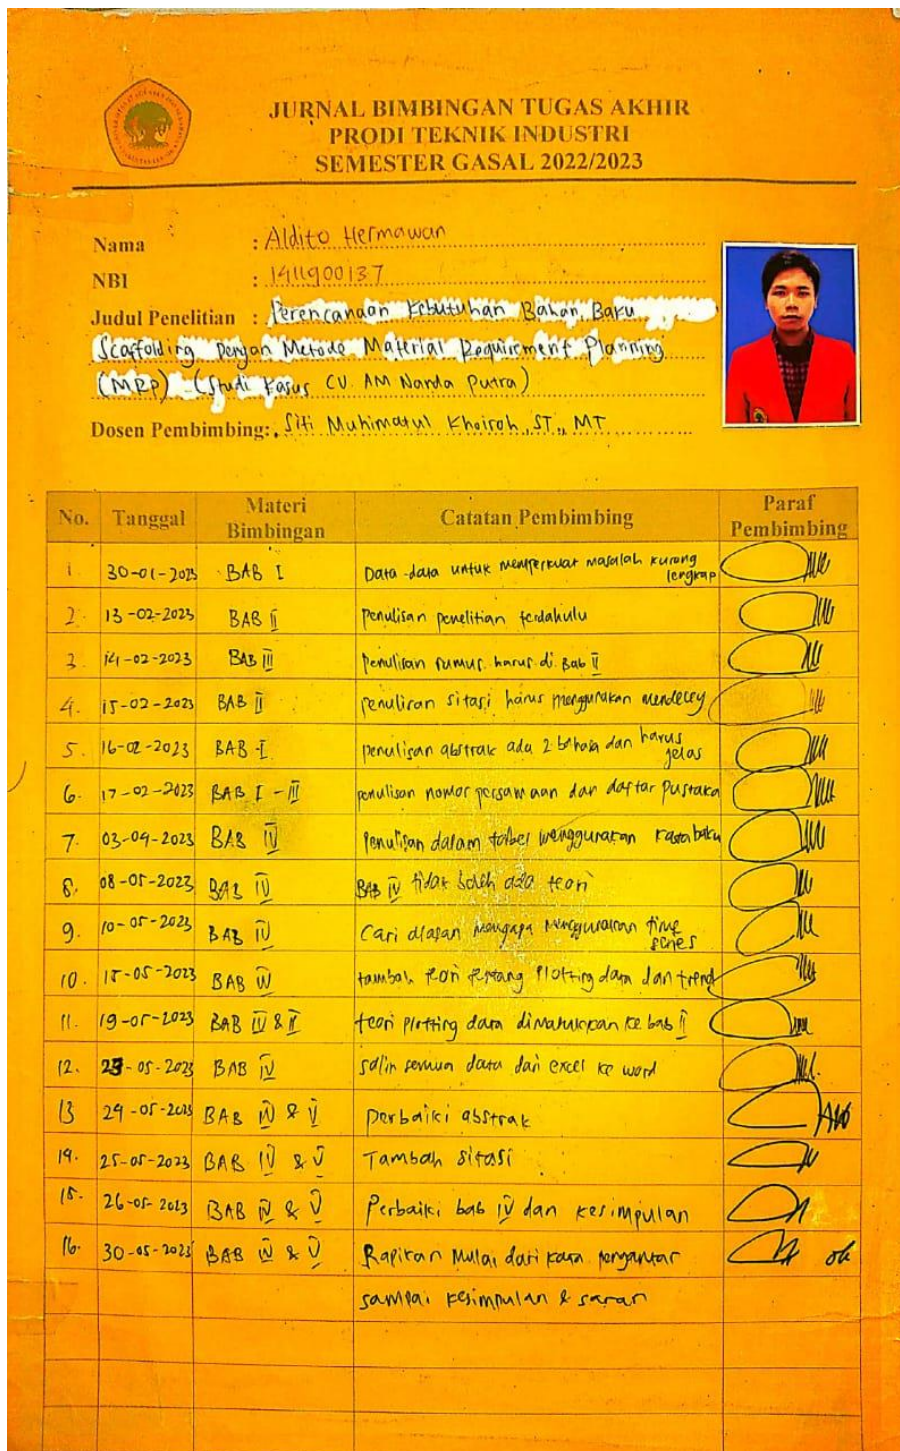 JURNAL BIMBINGAN TUGAS AKHIR
PRODI TEKNIK INDUSTRI
SEMESTER GASAL 2022/2023
Nama : Aldito Hermawan
NBI : 1411900137
Judul Penelitian : Perencanaan Kebutuhan Bahan Baku
Scaffolding Dengan Metode Material Requirement Planning
(MRP) (Studi Kasus CV. AM Nanda Putra)
Dosen Pembimbing: Siti Muhimatul Khoiroh, ST., MT
No. Tanggal Materi Bimbingan Catatan Pembimbing Paraf Pembimbing
1 30-01-2023 BAB I Data-data untuk memperkuat masalah kurang lengkap
2. 13-02-2023 BAB II Penulisan penelitian terdahulu
3. 14-02-2023 BAB III Penulisan rumus harus di Bab II
4. 15-02-2023 BAB II Penulisan sitasi harus menggunakan mendeley
5. 16-02-2023 BAB I penulisan abstrak ada 2 bahasa dan harus jelas
6. 17-02-2023 BAB I - III penulisan nomor persamaan dan daftar pustaka
7. 03-04-2023 BAB IV Penulisan dalam tabel menggunakan kata baku
8. 08-05-2023 BAB IV BAB IV tidak boleh ada teori
9. 10-05-2023 BAB IV Cari alasan mengapa menggunakan time series
10. 15-05-2023 BAB IV tambah teori tentang Plotting data dan trend
11. 19-05-2023 BAB IV & II teori plotting data dimasukkan ke bab II
12. 23-05-2023 BAB IV salin semua data dari excel ke word
13 24-05-2023 BAB IV & V Perbaiki abstrak
14. 25-05-2023 BAB IV & V Tambah sitasi
15. 26-05-2023 BAB IV & V Perbaiki bab IV dan kesimpulan
16. 30-05-2023 BAB IV & V Rapikan mulai dari kata pengantar ok
sampai kesimpulan & saran